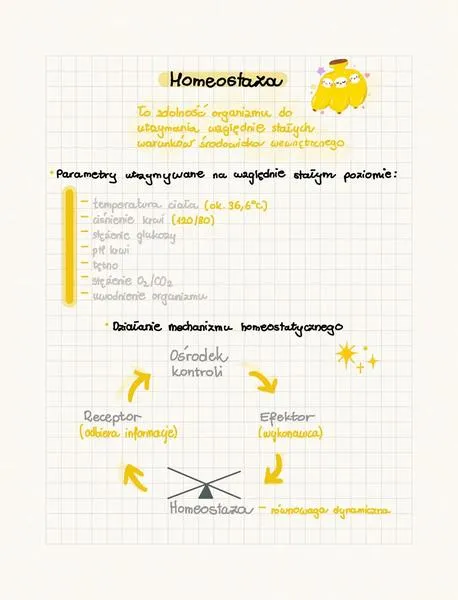 Homeostaza
To zdolność organizmu do
utrzymania względnie stałych
warunków środowiska wewnętrznego
• Parametry utrzymywane na względnie stałym poziomie:
– temperatura ciała (ok. 36,6°C)
– ciśnienie krwi (120/80)
– stężenie glukozy
– pH krwi
– tętno
– stężenie O₂/CO₂
– uwodnienie organizmu
• Działanie mechanizmu homeostatycznego
Ośrodek
kontroli
Receptor
(odbiera informacje)
Efektor
(wykonawca)
Homeostaza – równowaga dynamiczna